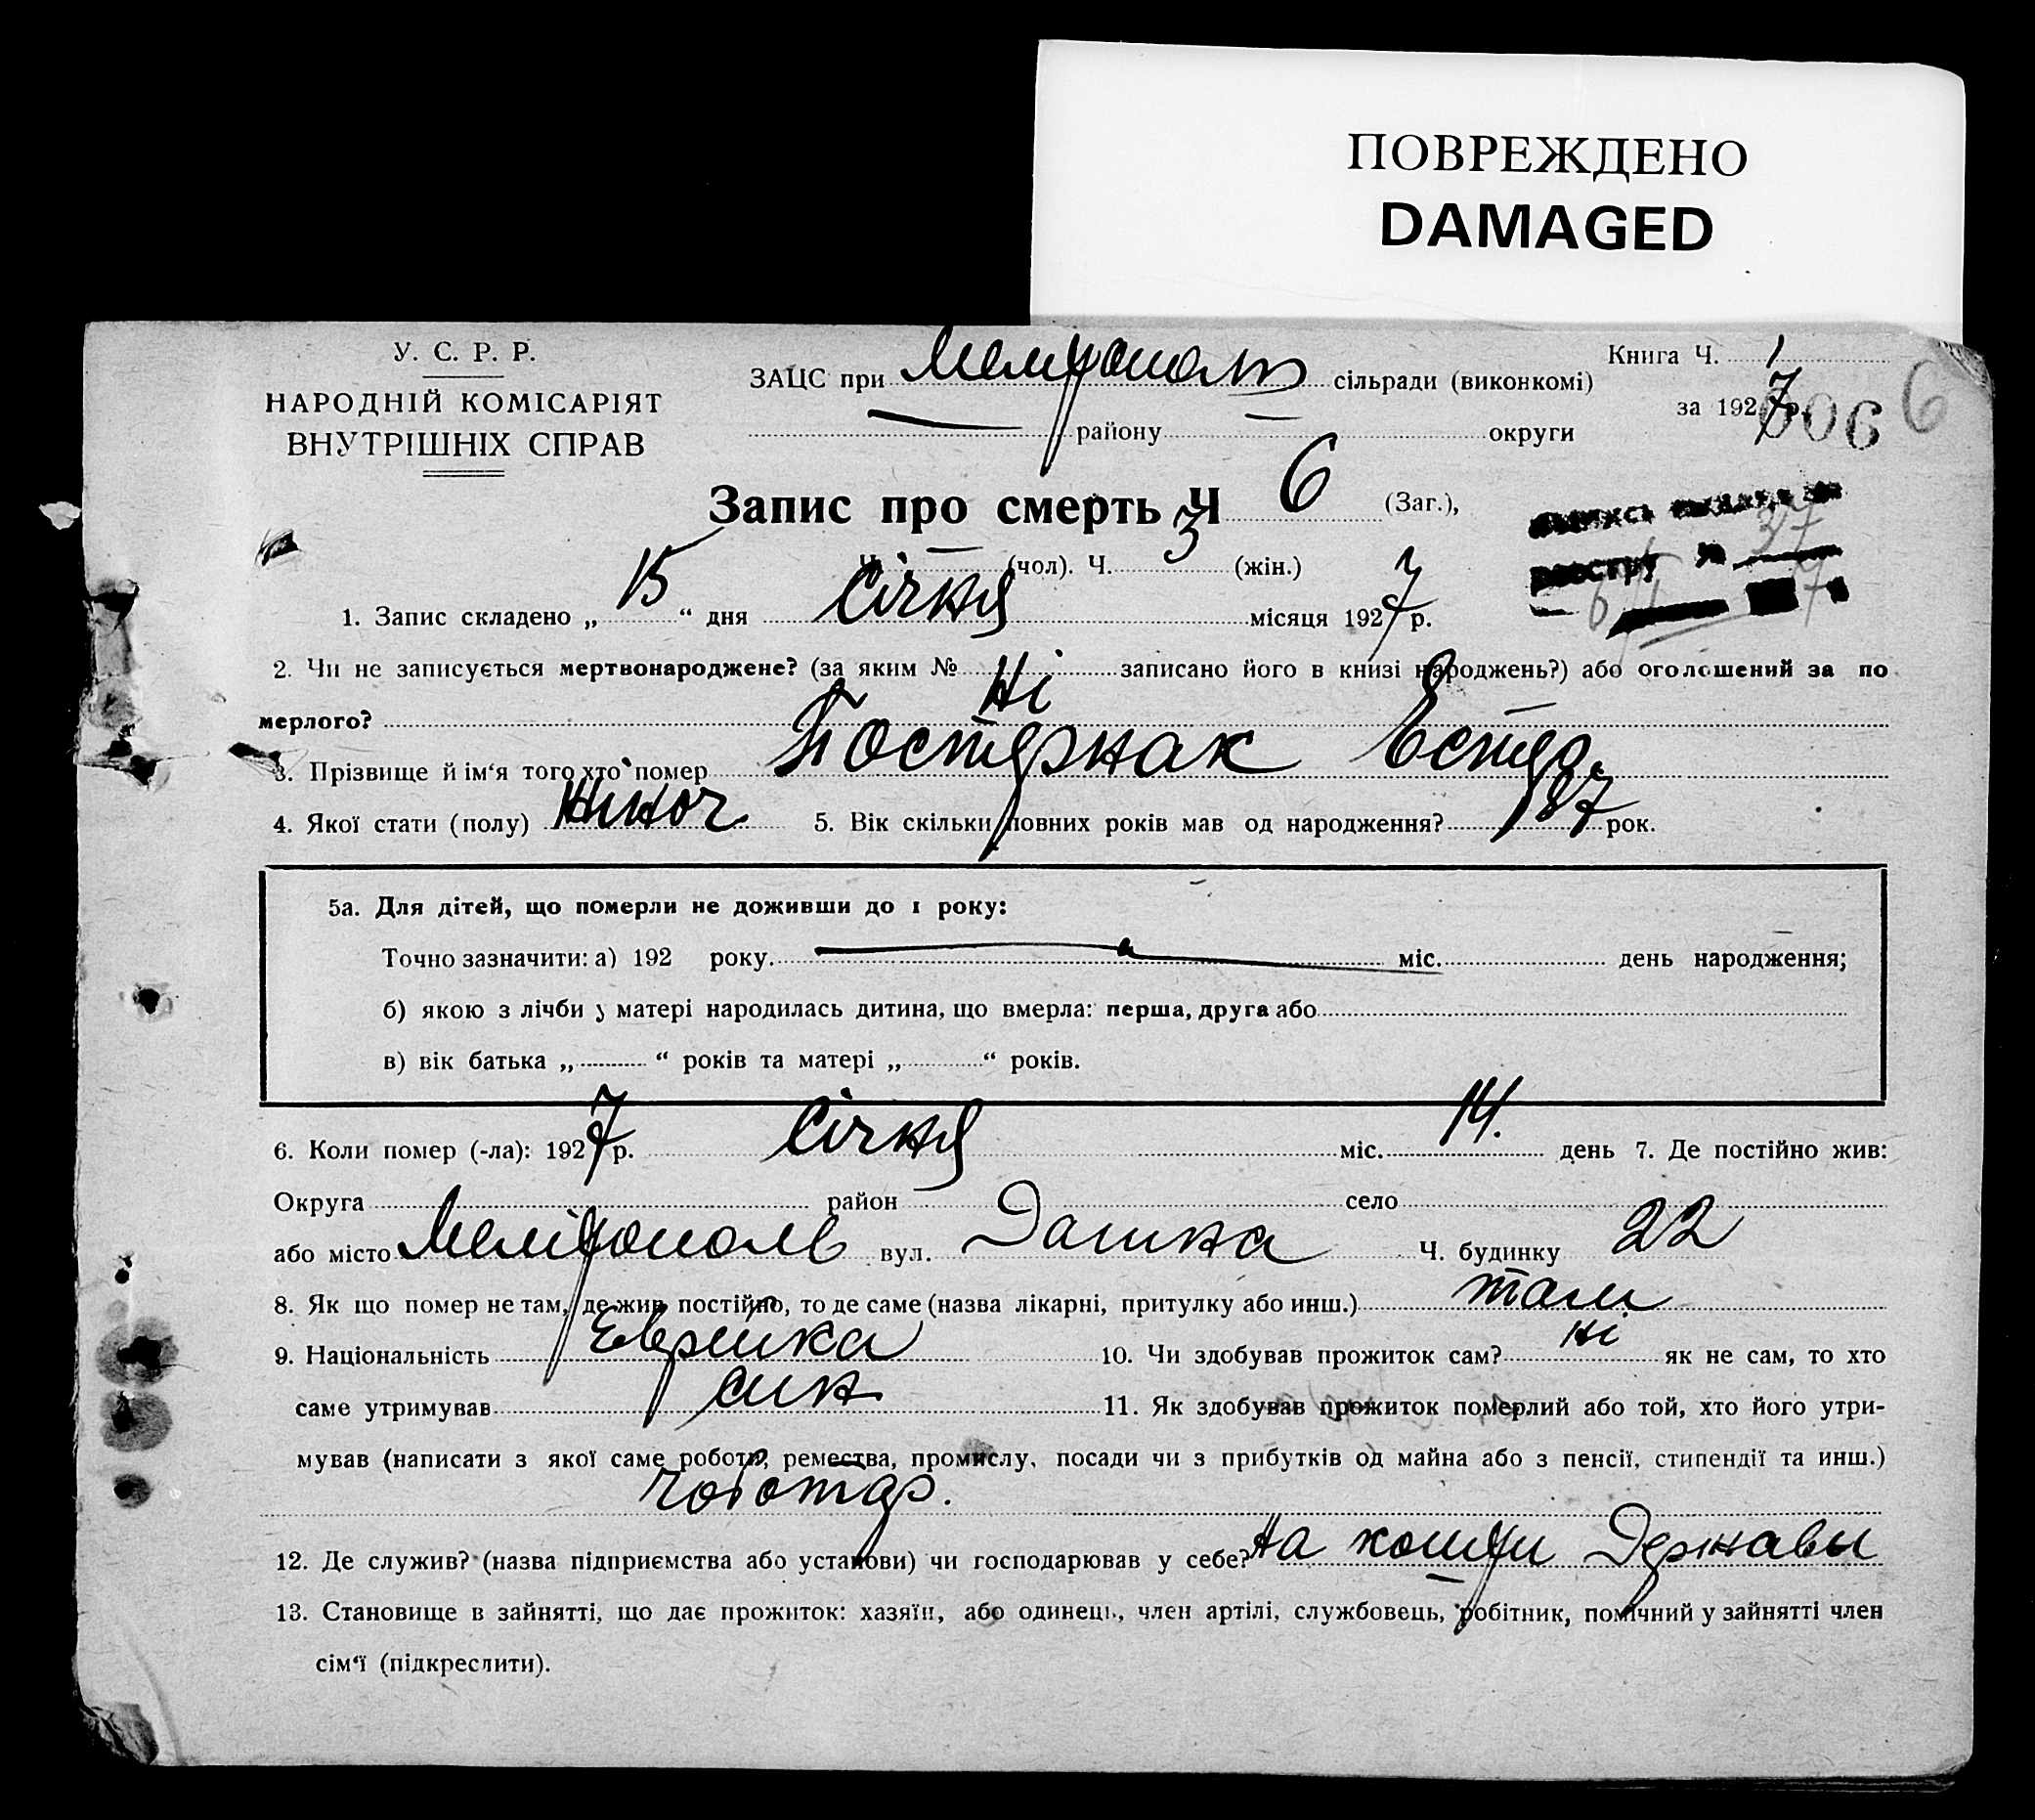 ПОВРЕЖДЕНО
DAMAGED
У. С. Р. Р.
НАРОДНІЙ КОМІСАРІЯТ
ВНУТРІШНІХ СПРАВ
ЗАЦС при сільради (виконкомі)
району округи
Книга Ч. 1
за 1927 р.
006 6
Запис про смерть Ч 6 (Заг.),
Ч. — (чол). Ч. 3 (жін.)
1. Запис складено „ 15 “ дня Січня місяця 1927 р.
2. Чи не записується мертвонароджене? (за яким № Ні записано його в книзі народжень?) або оголошений за по
мерлого?
3. Прізвище й ім‘я того хто помер Постернак Естер.
4. Якої стати (полу) жіноч 5. Вік скільки повних років мав од народження? 87 рок.
5а. Для дітей, що померли не доживши до 1 року:
Точно зазначити: а) 192 року. міс. день народження;
б) якою з лічби у матері народилась дитина, що вмерла: перша, друга або
в) вік батька „ “ років та матері „ “ років.
6. Коли помер (-ла): 1927 р. Січня міс. 14. день 7. Де постійно жив:
Округа район село
або місто Мелітополь вул. Ч. будинку 22
8. Як що помер не там, де жив постійно, то де саме (назва лікарні, притулку або инш.) там
9. Національність Еврейка 10. Чи здобував прожиток сам? ні як не сам, то хто
саме утримував син 11. Як здобував прожиток померлий або той, хто його утри-
мував (написати з якої саме роботи, ремества, промислу, посади чи з прибутків од майна або з пенсії, стипендії та инш.)
чоботар.
12. Де служив? (назва підприємства або установи) чи господарював у себе? на кошти Державы
13. Становище в зайнятті, що дає прожиток: хазяїн, або одинець, член артілі, службовець, робітник, помічний у зайнятті член
сім‘ї (підкреслити).